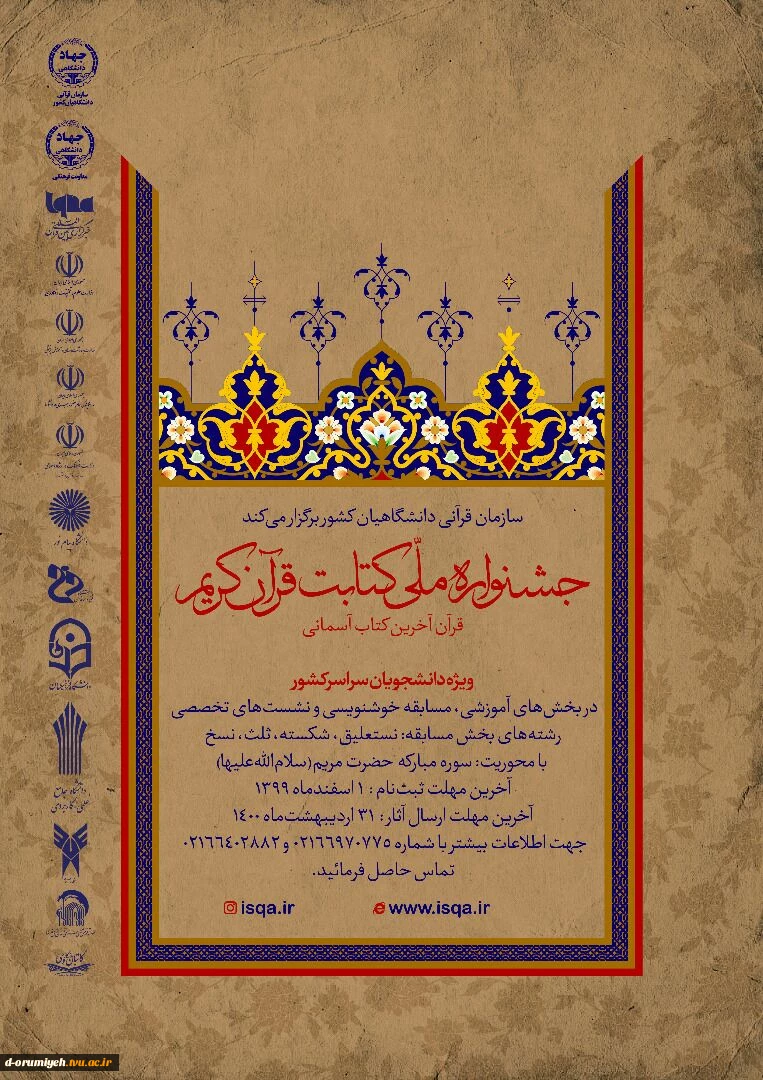 سازمان قرآنی دانشگاهیان کشور برگزار می‌کند
جشنواره ملّی کتابت قرآن کریم
قرآن آخرین کتاب آسمانی
ویژه دانشجویان سراسر کشور
در بخش‌های آموزشی، مسابقه خوشنویسی و نشست‌های تخصصی
رشته‌های بخش مسابقه: نستعلیق، شکسته، ثلث، نسخ
با محوریت: سوره مبارکه حضرت مریم (سلام‌الله‌علیها)
آخرین مهلت ثبت‌نام: ۱ اسفندماه ۱۳۹۹
آخرین مهلت ارسال آثار: ۳۱ اردیبهشت‌ماه ۱۴۰۰
جهت اطلاعات بیشتر با شماره ۰۲۱۶۶۹۷۰۷۷۵ و ۰۲۱۶۶۴۰۲۸۸۲
تماس حاصل فرمائید.
isqa.ir
www.isqa.ir
جهاد
دانشگاهی
سازمان قرآنی
دانشگاهیان کشور
جهاد
دانشگاهی
معاونت فرهنگی
iqna
دانشگاه پیام نور
دانشگاه فرهنگیان
دانشگاه جامع
علمی کاربردی
d-orumiyeh.tvu.ac.ir